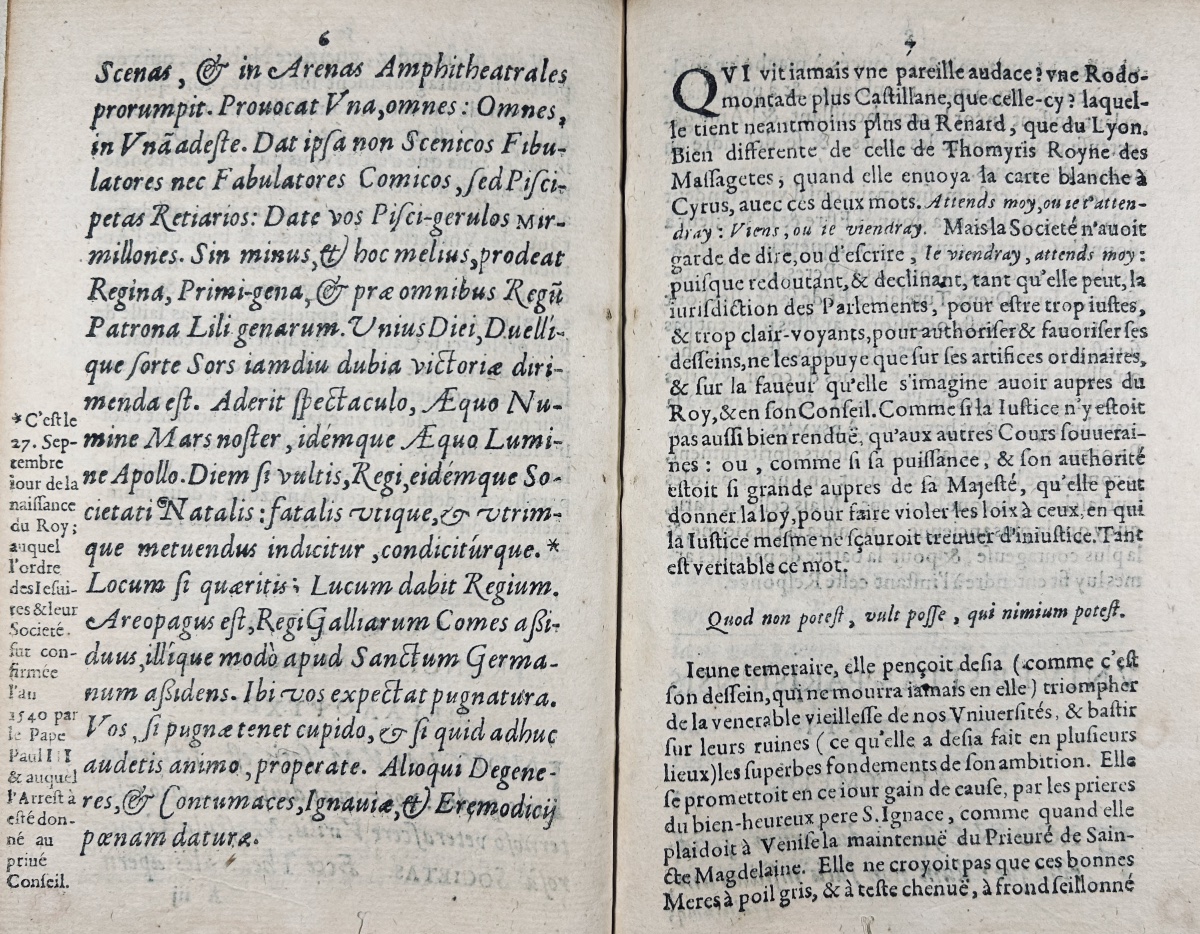 6
Scenas, & in Arenas Amphitheatrales
prorumpit. Prouocat Vna, omnes: Omnes,
in Vnã adeſte. Dat ipſa non Scenicos Fibu-
latores nec Fabulatores Comicos, ſed Piſci-
petas Retiarios: Date vos Piſci-gerulos Mir-
millones. Sin minus, & hoc melius, prodeat
Regina, Primi-gena, & præ omnibus Regũ
Patrona Liligenarum. Unius Diei, Duelli-
que ſorte Sors iamdiu dubia victoriæ diri-
menda eſt. Aderit ſpectaculo, Æquo Nu-
mine Mars noſter, idémque Æquo Lumi-
ne Apollo. Diem ſi vultis, Regi, eidémque So-
cietati Natalis: fatalis vtique, & vtrim-
que metuendus indicitur, condicitúrque. *
Locum ſi quæritis; Lucum dabit Regium.
Areopagus eſt, Regi Galliarum Comes aßi-
duus, illíque modò apud Sanctum Germa-
num aßidens. Ibi vos expectat pugnatura.
Vos, ſi pugnæ tenet cupido, & ſi quid adhuc
audetis animo, properate. Alioqui Degene-
res, & Contumaces, Ignauiæ, & Eremodicij
pœnam daturæ.
* C'eſt le
27. Sep-
tembre
iour de la
naiſſance
du Roy;
auquel
l'ordre
des Ieſui-
res & leur
Societé
fut con-
firmée
l'an
1540 par
le Pape
Paul III
& auquel
l'Arreſt à
eſté don-
né au
priué
Conſeil.
7
QVI vit iamais vne pareille audace? vne Rodo-
montade plus Caſtillane, que celle-cy? laquel-
le tient neantmoins plus du Renard, que du Lyon.
Bien differente de celle de Thomyris Royne des
Maſſagetes, quand elle enuoya la carte blanche à
Cyrus, auec ces deux mots. Attends moy, ou ie t'atten-
dray: Viens, ou ie viendray. Mais la Societé n'auoit
garde de dire, ou d'eſcrire, Ie viendray, attends moy:
puiſque redoutant, & declinant, tant qu'elle peut, la
iurisdiction des Parlements, pour eſtre trop iuſtes,
& trop clair-voyants, pour authoriſer & fauoriſer ſes
deſſeins, ne les appuye que ſur ſes artifices ordinaires,
& ſur la faueur qu'elle s'imagine auoir aupres du
Roy, & en ſon Conſeil. Comme ſi la Iuſtice n'y eſtoit
pas auſſi bien renduë, qu'aux autres Cours ſouuerai-
nes: ou, comme ſi ſa puiſſance, & ſon authorité
eſtoit ſi grande aupres de ſa Majeſté, qu'elle peut
donner la loy, pour faire violer les loix à ceux, en qui
la Iuſtice meſme ne ſçauroit treuuer d'iniuſtice. Tant
eſt veritable ce mot.
Quod non poteſt, vult poſſe, qui nimium poteſt.
Ieune temeraire, elle pençoit deſia (comme c'eſt
ſon deſſein, qui ne mourra iamais en elle) triompher
de la venerable vieilleſſe de nos Vniuerſités, & baſtir
ſur leurs ruines (ce qu'elle a deſia fait en pluſieurs
lieux) les ſuperbes fondements de ſon ambition. Elle
ſe promettoit en ce iour gain de cauſe, par les prieres
du bien-heureux pere S. Ignace, comme quand elle
plaidoit à Veniſe la maintenuë du Prieuré de Sain-
cte Magdelaine. Elle ne croyoit pas que ces bonnes
Meres à poil gris, & à teſte chenuë, à frond ſeillonné